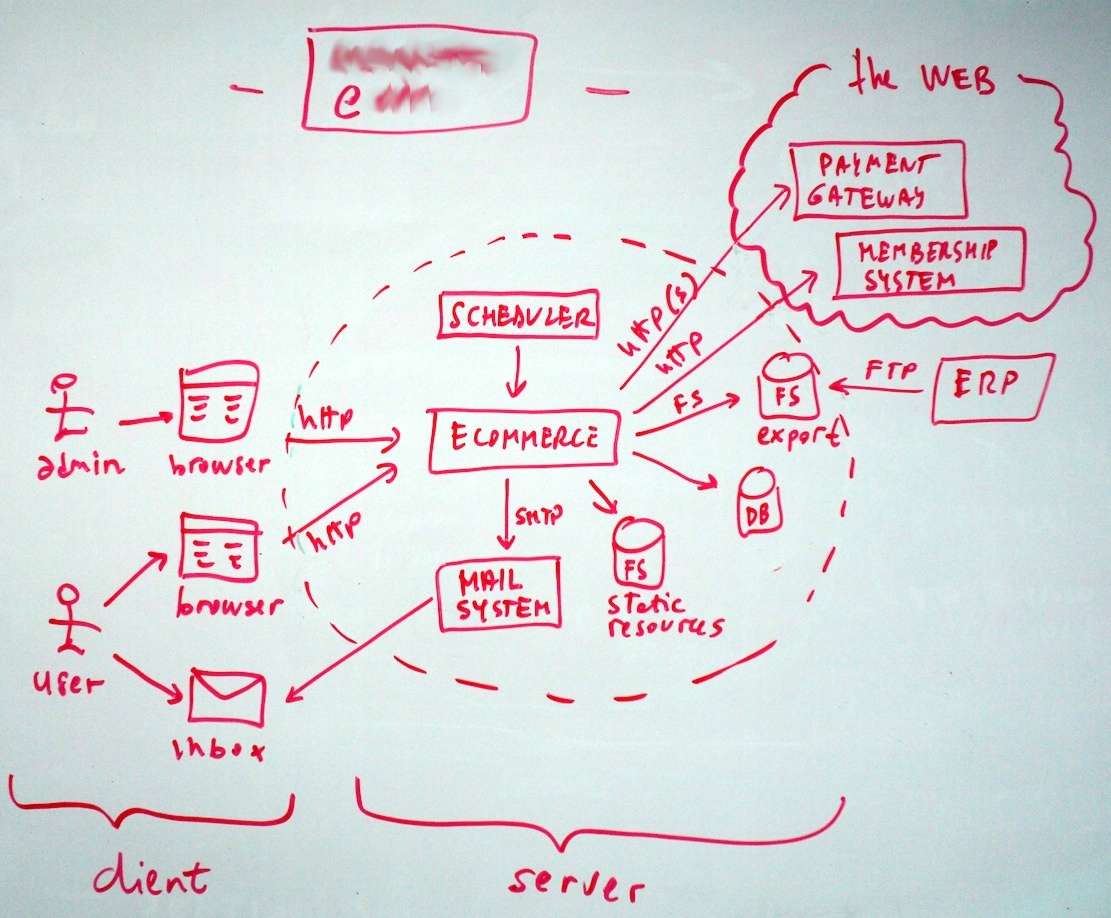 e
the WEB
PAYMENT
GATEWAY
MEMBERSHIP
SYSTEM
HTTP(S)
HTTP
SCHEDULER
FS
FS
export
FTP
ERP
admin
browser
HTTP
ECOMMERCE
DB
browser
HTTP
SMTP
MAIL
SYSTEM
FS
static
resources
user
inbox
client
server